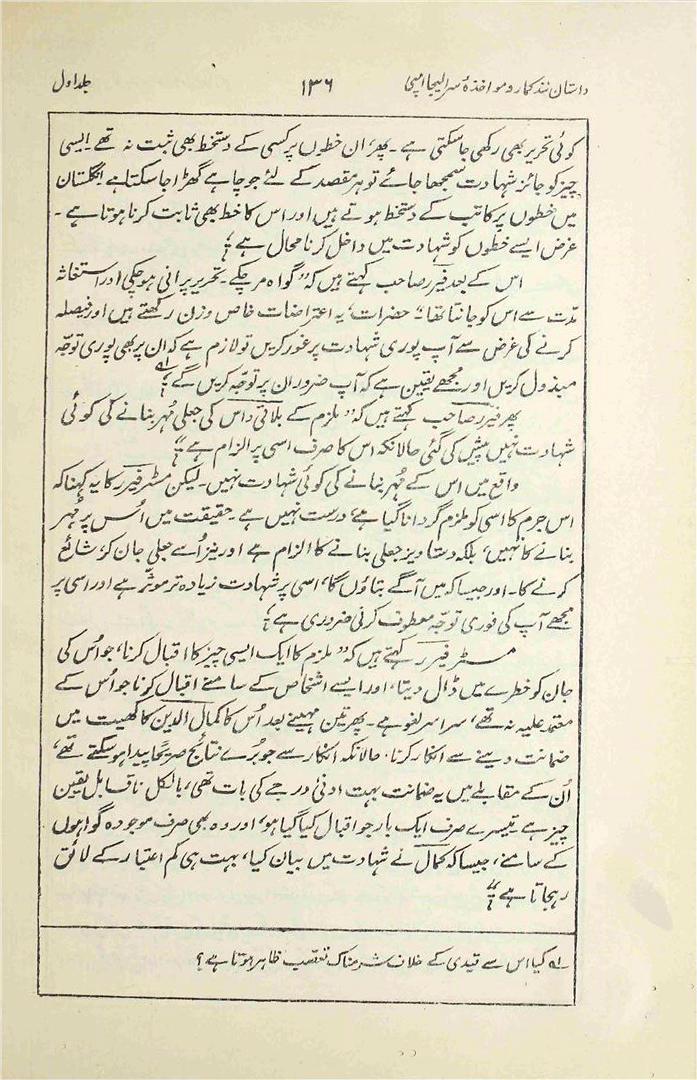 داستان نند کمار و مواخذۂ سر الیجا امپی ۱۳۶ جلد اول
کوئی تحریر بھی رکھی جا سکتی ہے ۔ پھر، ان خطوں پر کسی کے دستخط بھی ثبت نہ تھے ۔ ایسی
چیز کو جائز شہادت سمجھا جائے تو ہر مقصد کے لئے جو چاہے گھڑا جا سکتا ہے انگلستان
میں خطوں پر کاتب کے دستخط ہوتے ہیں اور اس کا خط بھی ثابت کرنا ہوتا ہے ۔
غرض ایسے خطوں کو شہادت میں داخل کرنا محال ہے ؛
اس کے بعد فیرر صاحب کہتے ہیں کہ "گواہ مر چکے ۔ تحریر پرانی ہو چکی اور استغاثہ
مدت سے اس کو جانتا تھا" حضرات، یہ اعتراضات خاص وزن رکھتے ہیں اور فیصلہ
کرنے کی غرض سے آپ پوری شہادت پر غور کریں تو لازم ہے کہ ان پر بھی پوری توجہ
مبذول کریں اور مجھے یقین ہے کہ آپ ضرور ان پر توجہ کریں گے ؛ لہ
پھر فیرر صاحب کہتے ہیں کہ "ملزم کے بلاقی داس کی جعلی مُہر بنانے کی کوئی
شہادت نہیں پیش کی گئی حالانکہ اس کا صرف اسی پر الزام ہے ؛"
واقع میں اس کے مُہر بنانے کی کوئی شہادت نہیں ۔ لیکن مسٹر فیرر کا یہ کہنا کہ
اس جرم کا اسی کو ملزم گردانا گیا ہے، درست نہیں ہے ۔ حقیقت میں اُس پر مُہر
بنانے کا نہیں، بلکہ دستاویز جعلی بنانے کا الزام ہے اور نیز اُسے جعلی جان کر، شائع
کرنے کا ۔ اور جیسا کہ میں آگے بتاؤں گا، اسی پر شہادت زیادہ تر موثر ہے اور اسی پر
مجھے آپ کی فوری توجہ معطوف کرنی ضروری ہے ؛
مسٹر فیرر کہتے ہیں کہ "ملزم کا ایک ایسی چیز کا اقبال کرنا، جو اُس کی
جان کو خطرے میں ڈال دیتا، اور ایسے اشخاص کے سامنے اقبال کرنا جو اُس کے
معتمد علیہ نہ تھے، سراسر لغو ہے ۔ پھر تین مہینے بعد اُس کا کمال الدین کا کھیت میں
ضمانت دینے سے انکار کرنا، حالانکہ انکار سے جو بُرے نتائج صریحاً پیدا ہو سکتے تھے،
اُن کے مقابلے میں یہ ضمانت بہت ادنیٰ درجے کی بات تھی، بالکل ناقابل یقین
چیز ہے تیسرے صرف ایک بار جو اقبال کیا گیا ہو، اور وہ بھی صرف موجودہ گواہوں
کے سامنے، جیسا کہ کمال نے شہادت میں بیان کیا، بہت ہی کم اعتبار کے لائق
رہجاتا ہے ؛"
لہ کیا اس سے قیدی کے خلاف شرمناک تعصب ظاہر ہوتا ہے ؟